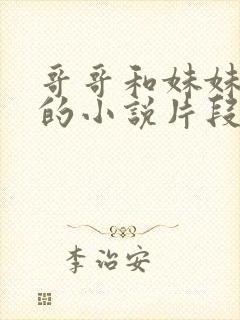 哥哥和妹妹
的小説片段
李治安